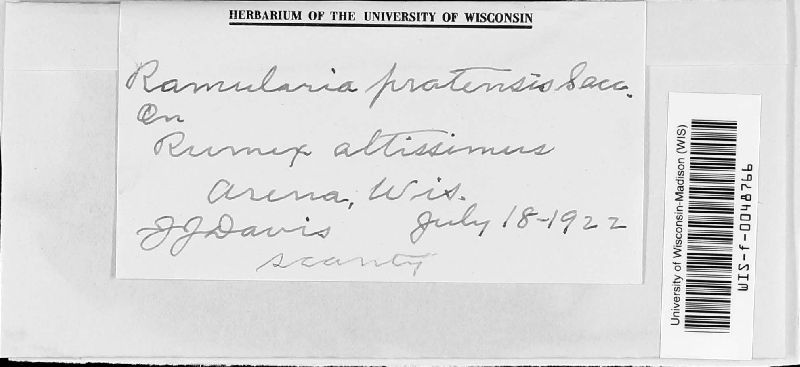 HERBARIUM OF THE UNIVERSITY OF WISCONSIN
Ramularia pratensis Sacc.
On
Rumex altissimus
Arena, Wis.
JJDavis July 18-1922
scanty
University of Wisconsin-Madison (WIS)
WIS-f-0048766